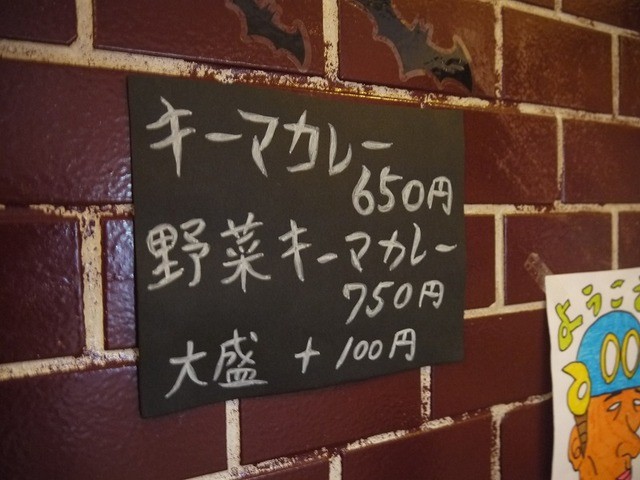 キーマカレー
650円
野菜キーマカレー
750円
大盛 + 100円
ようこ